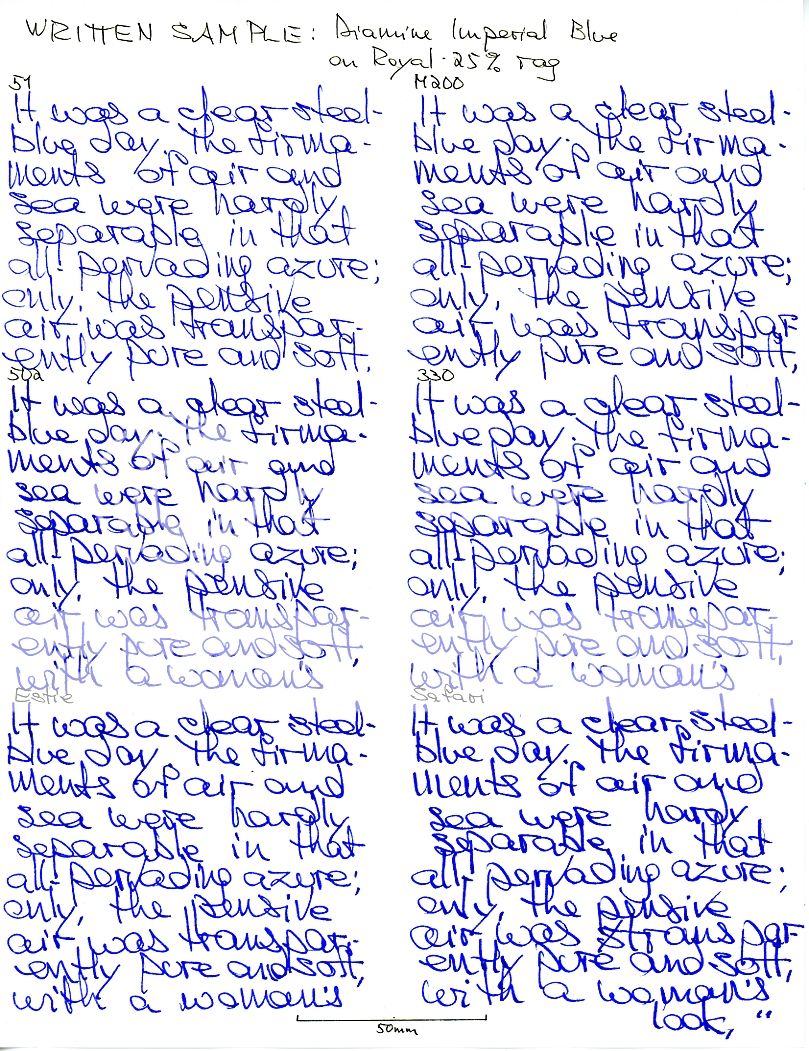 WRITTEN SAMPLE: Diamine Imperial Blue
on Royal · 25% rag
51
It was a clear steel-
blue day. The firma-
ments of air and
sea were hardly
separable in that
all-pervading azure;
only, the pensive
air was transpar-
ently pure and soft,
M200
It was a clear steel-
blue day. The firma-
ments of air and
sea were hardly
separable in that
all-pervading azure;
only, the pensive
air was transpar
ently pure and soft,
50a
It was a clear steel-
blue day. The firma-
ments of air and
sea were hardly
separable in that
all-pervading azure;
only, the pensive
air was transpar-
ently pure and soft,
with a woman's
330
It was a clear steel-
blue day. The firma-
ments of air and
sea were hardly
separable in that
all-pervading azure;
only, the pensive
air was transpar-
ently pure and soft,
with a woman's
Estie
It was a clear steel-
blue day. The firma-
ments of air and
sea were hardly
separable in that
all-pervading azure;
only, the pensive
air was transpar-
ently pure and soft,
with a woman's
Safari
It was a clear steel-
blue day. The firma-
ments of air and
sea were hardly
separable in that
all-pervading azure;
only, the pensive
air was transpar
ently pure and soft,
with a woman's
look, "
50mm